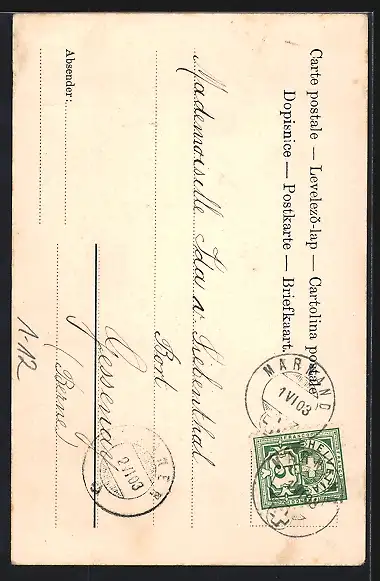 Carte postale — Levelezŏ-lap — Cartolina postale
Dopisnice — Postkarte — Briefkaart.
MARBAND
1 VI 03
HELVETIA
5
FRANCO
Mademoiselle Ida v. Siebenthal
Bort
Gessenay
(Berne)
2 VI 03
Absender:
1-12